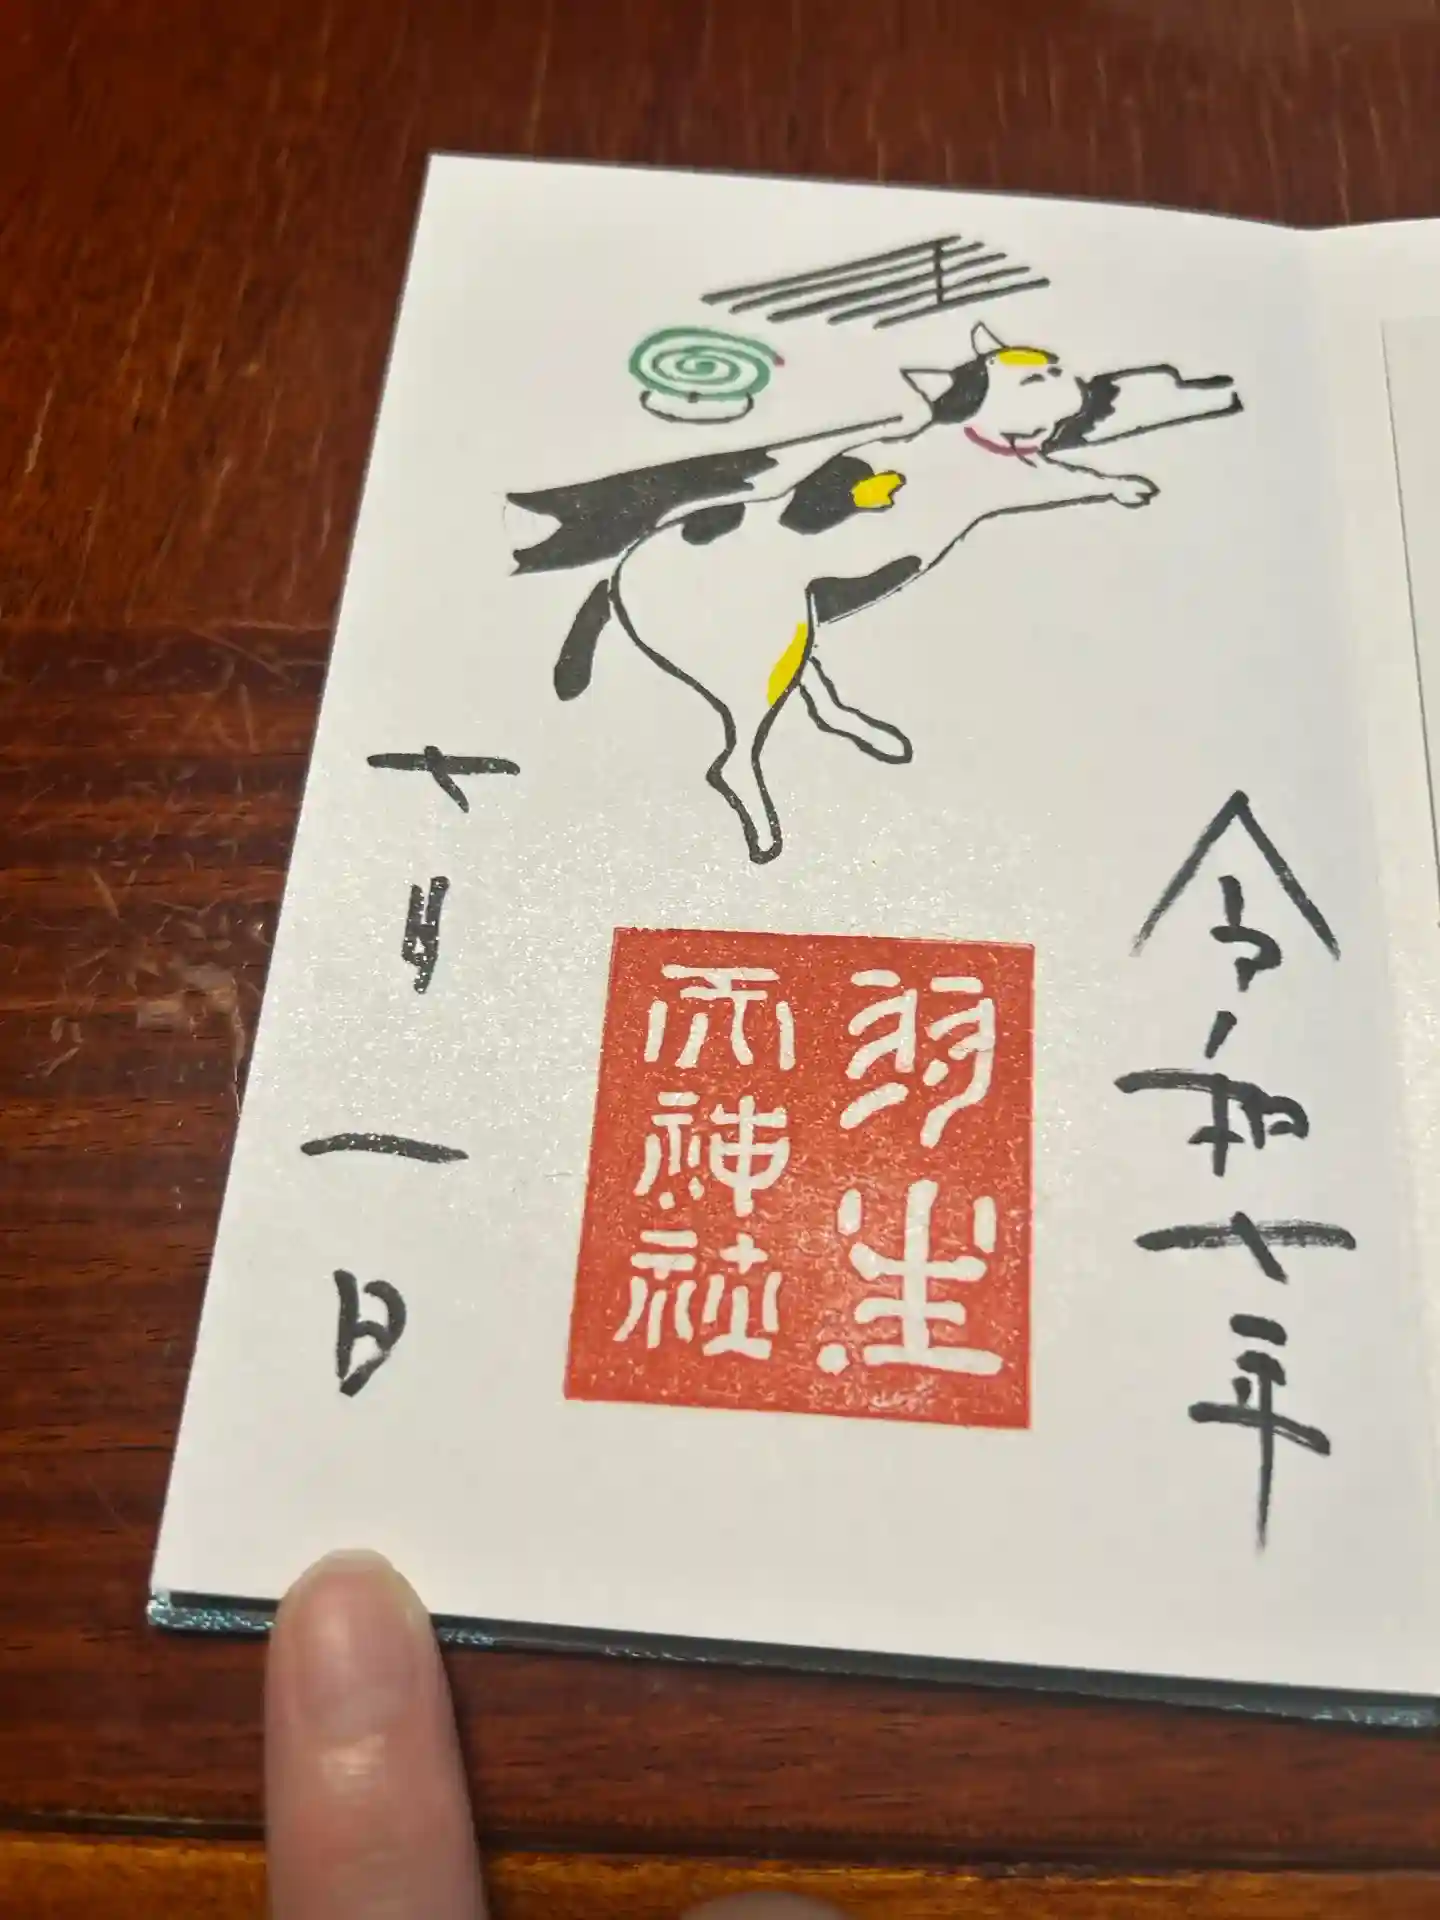 令和七年
羽生
天神社
七月一日